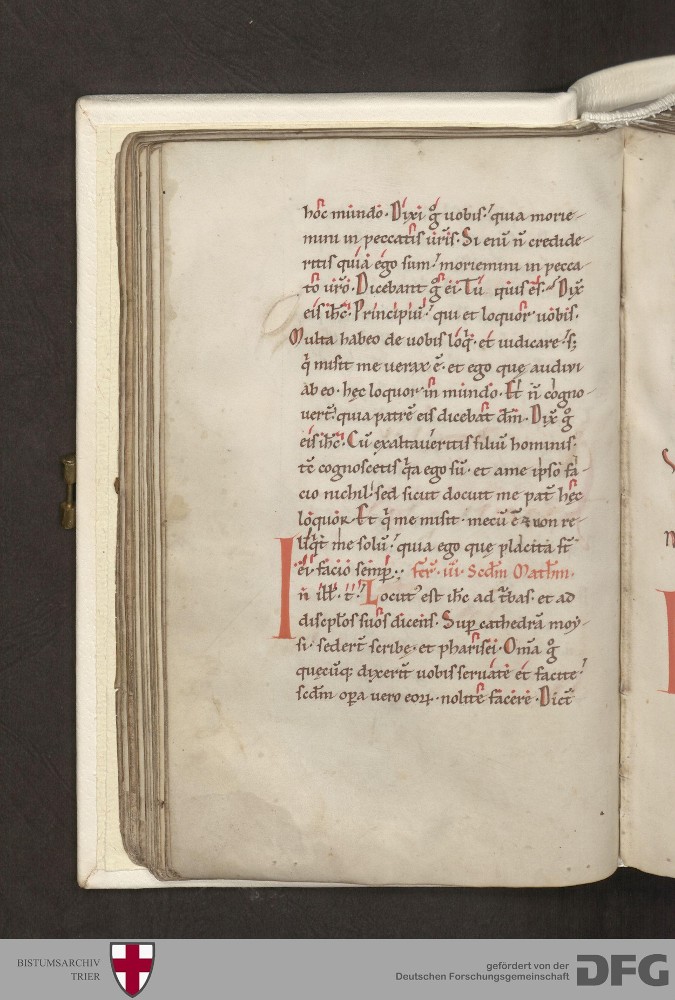 hoc mundo. Dixi g̊ uobis. quia morie-
mini in peccatis ur̃is. Si enĩ ñ credide-
ritis quia ego sum. moriemini in pecca-
to ur̃o. Dicebant g̊ ei. Tu quis es. Dix̃
eis ihc̃. Principiũ. qui et loquor uobis.
Multa habeo de uobis loq̃. et iudicare. s;
q̃ misit me uerax ẽ. et ego quę audiui
ab eo. hęc loquor in mundo. Et ñ cogno-
uer̃t. quia patrẽ eis dicebat dm̃. Dix̃ g̊
eis ihc̃. Cũ exaltaueritis filiũ hominis.
tc̃ cognoscetis q̃a ego sũ. et a me ipso fa-
cio nichil. sed sicut docuit me pat̃ hęc
loquor. Et q̃ me misit. mecũ ẽ ⁊ non re-
liq̃t me solũ. quia ego quę placita st̃
ei. facio semp̃. fer̃. iii. Scdm̃ Math̃m.
In ill̃. t̃. Locut᷒ est ihc̃ ad t̃bas. et ad
discpl̃os suos dicens. Sup̃ cathedrã moy-
si. seder̃t scribę. et pharisei. Om̃a g̊
quęcũq; dixerĩt uobis seruate et facite.
scdm̃ op̃a uero eoꝝ. nolite facere. Dic̃t
BISTUMSARCHIV
TRIER
gefördert von der
Deutschen Forschungsgemeinschaft
DFG